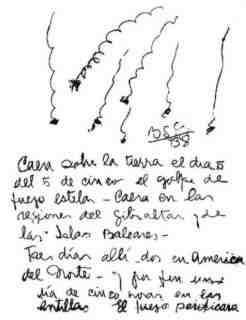 B.S.C.
38
Caera sobre la tierra el dia 5
del 5 de cinco el golpe de
fuego estelar - Caera en las
regiones del Gibraltar y de
las Islas Baleares -
Tres dias alli - dos en America
del Norte - y por fin un
dia de cinco horas en las
antillas El fuego purificara